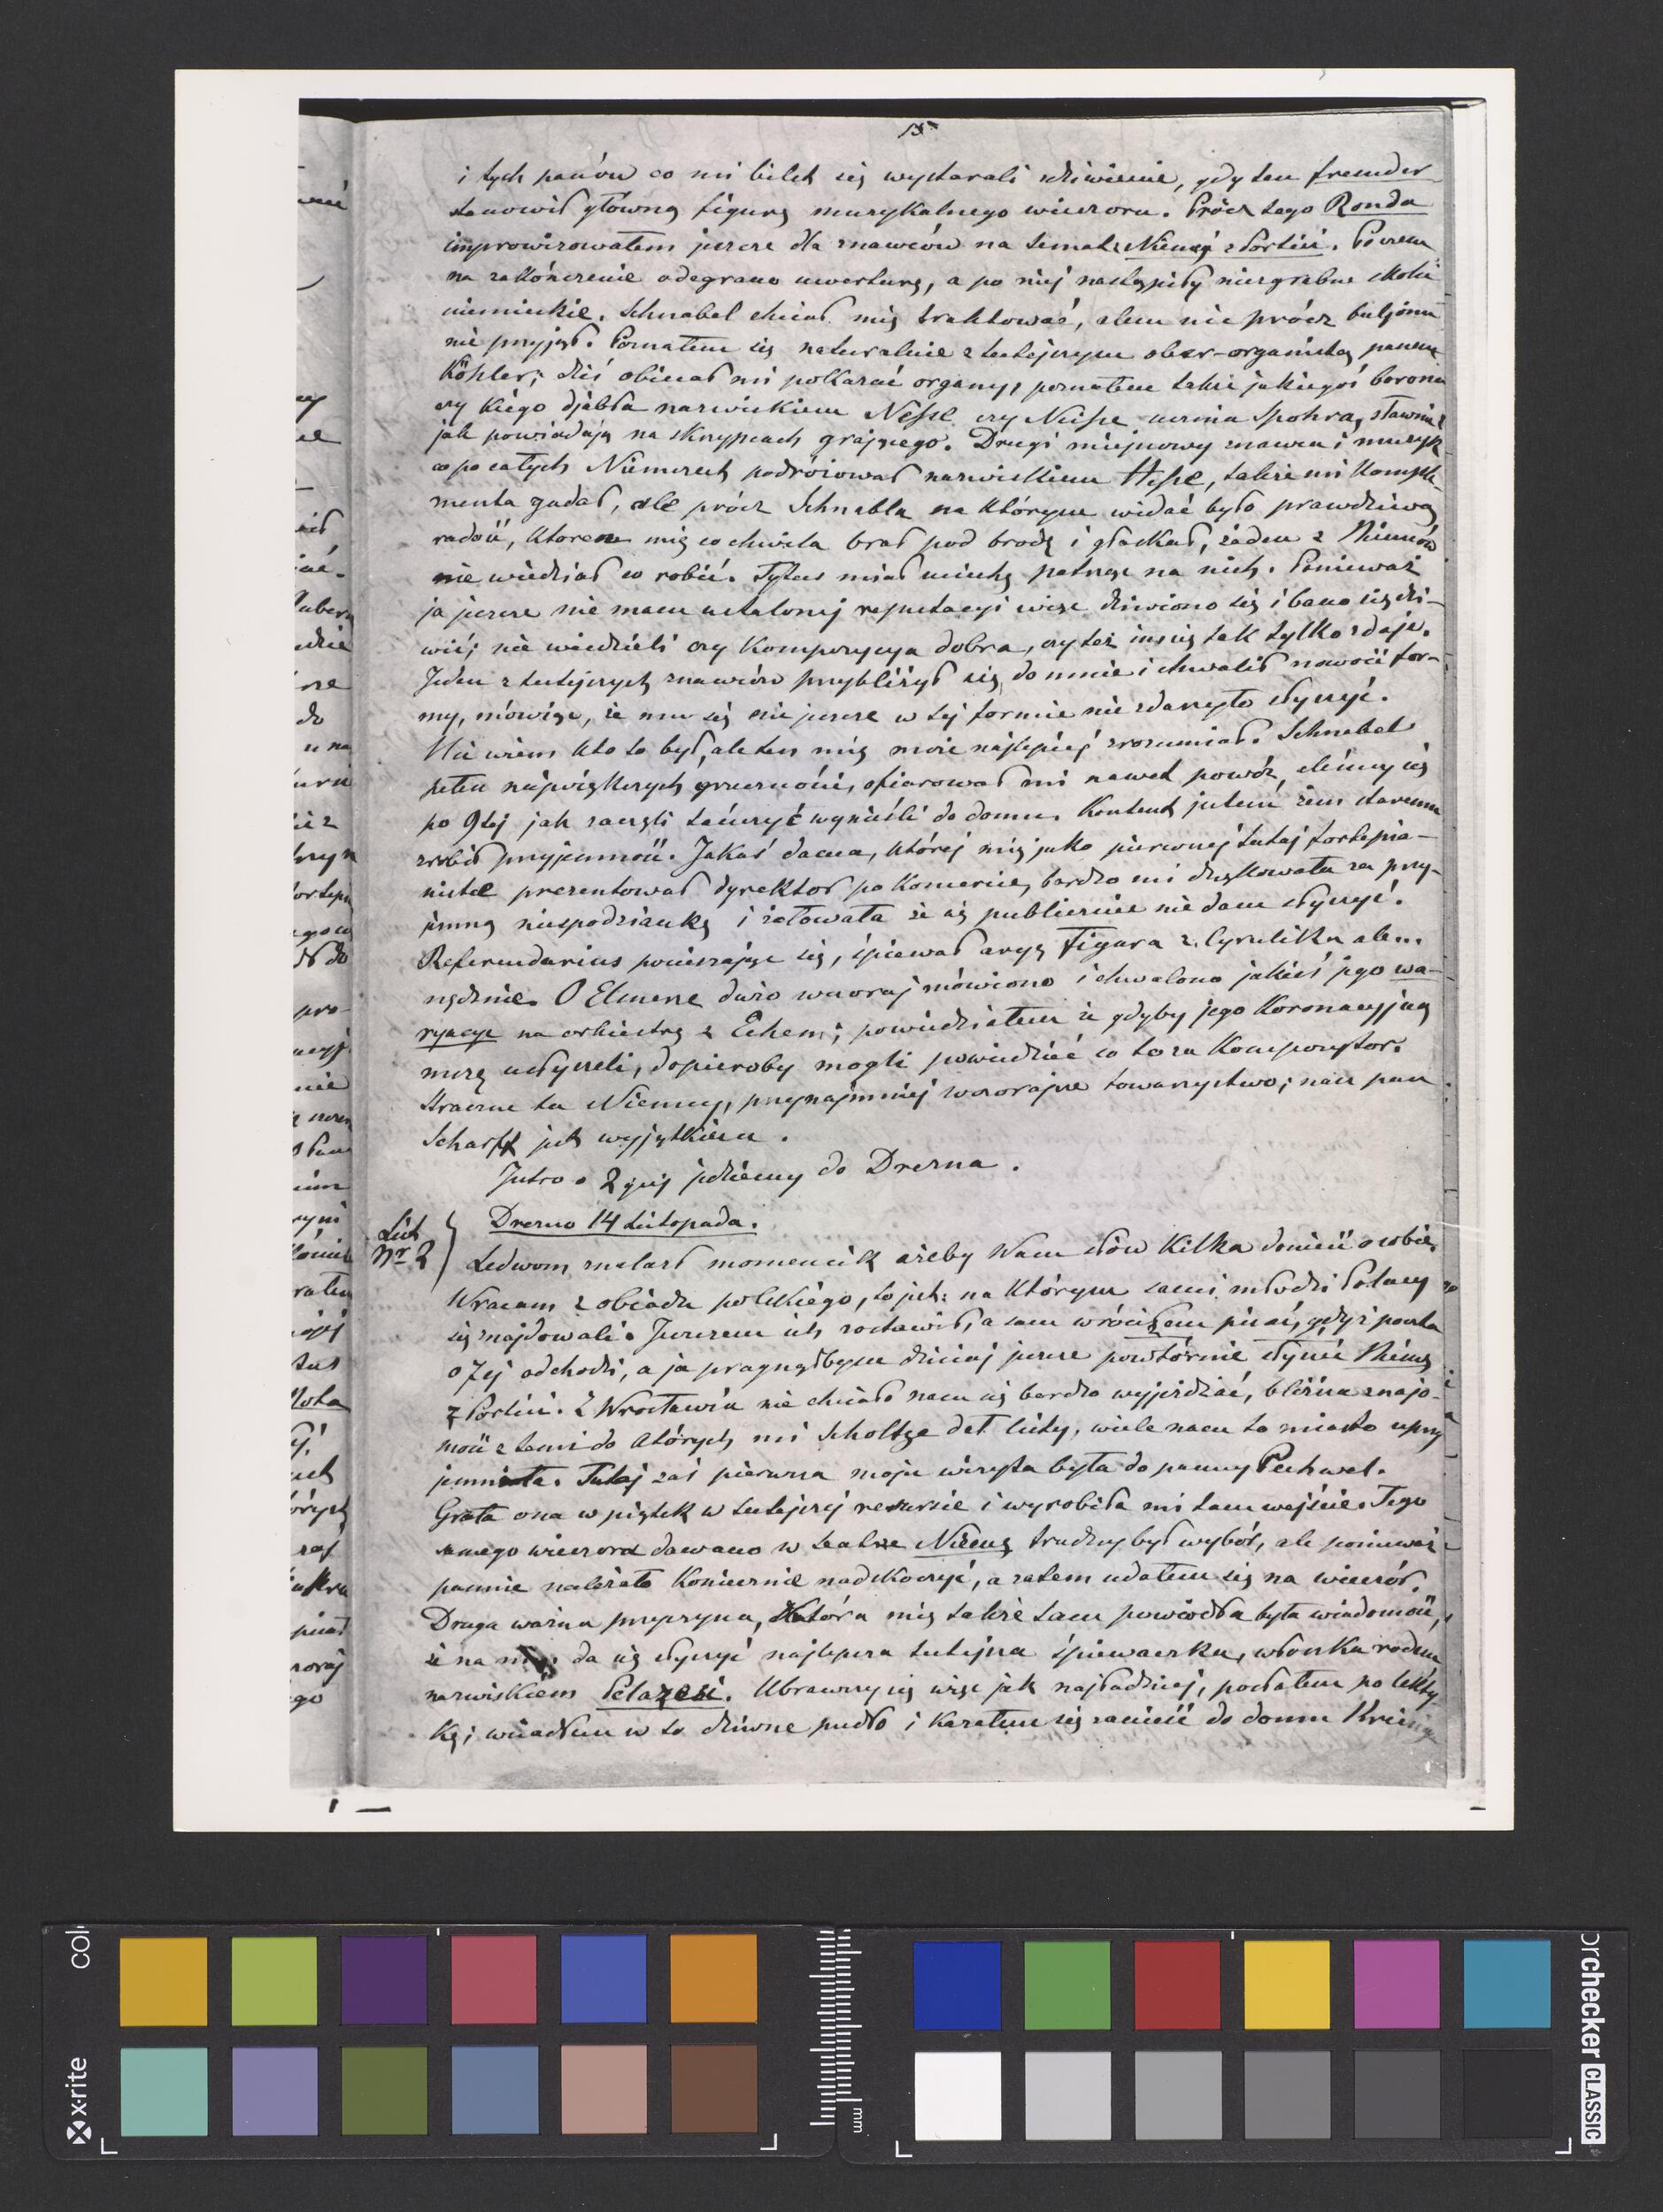 15
i tych panów co mi bilet się wystarali zdziwienie, gdy ten fremder
stanowił główną figurę muzykalnego wieczoru. Prócz tego Ronda
improwizowałem jeszcze dla znawców na temat z Niemej z Portici. Poczem
na zakończenie odegrano uwerturę, a po niej nastąpiły niezgrabne skoki
niemieckie. Schnabel chciał mię traktować, alem nic prócz buljonu
nie przyjął. Poznałem się naturalnie z tutejszym ober-organistą panem
Köhler; dziś obiecał mi pokazać organy, poznałem także jakiegoś barona
czy kiego djabła nazwiskiem Nesse czy Neisse ucznia Spohra, sławnie
jak powiadają na skrzypcach grającego. Drugi miejscowy znawca i muzyk
co po całych Niemczech podróżował nazwiskiem Hesse, także mi komple-
menta gadał, ale prócz Schnabla na którym widać było prawdziwą
radość, któren mię co chwila brał pod brodę i głaskał, żaden z Niemców
nie wiedział co robić. Tytus miał uciechę patrząc na nich. Ponieważ
ja jeszcze nie mam ustalonej reputacyi więc dziwiono się i bano się dzi-
wić; nie wiedzieli czy kompozycya dobra, czy też im się tak tylko zdaje.
Jeden z tutejszych znawców przybliżył się do mnie i chwalił nowość for-
my, mówiąc, że mu się nie jeszcze w tej formie nie zdarzyło słyszeć.
Nie wiem kto to był, ale ten mię może najlepiej zrozumiał. Schnabel
pełen największych grzeczności, ofiarował mi nawet powóz, aleśmy się
po 9tej jak zaczęli tańczyć wynieśli do domu. Kontent jestem żem staremu
zrobił przyjemność. Jakaś dama, której mię jako pierwszej tutaj fortepia-
nistce prezentował dyrektor po koncercie, bardzo mi dziękowała za przy-
jemną niespodziankę i żałowała że się publicznie nie dam słyszeć.
Referendarius pocieszając się, śpiewał aryę Figara z Cyrulika ale...
nędznie. O Elsnerze dużo wczoraj mówiono i chwalono jakieś jego wa-
ryacye na orkiestrę z Echem; powiedziałem że gdyby jego Koronacyjną
mszę usłyszeli, dopieroby mogli powiedzieć co to za Kompozytor.
Straszne tu Niemcy, przynajmniej wczorajsze towarzystwo; nasz pan
Scharff jest wyjątkiem.
Jutro o 2giej jedziemy do Drezna.
List
Nr 2
Drezno 14 Listopada.
Ledwom znalazł momencik ażeby Wam słów kilka donieść o sobie.
Wracam z obiadu polskiego, to jest: na którym sami młodzi Polacy
się znajdowali. Juszczem ich zostawił, a sam wróciłem pisać, gdyż poczta
o 7ej odchodzi, a ja pragnąłbym dzisiaj jeszcze powtórnie słyszeć Niemę
z Portici. Z Wrocławia nie chciało nam się bardzo wyjeżdżać, bliższa znajo-
mość z temi do których mi Scholtze dał listy, wiele nam to miasto uprzy
jemniała. Tutaj zaś pierwsza moja wizyta była do panny Pechwel.
Grała ona w piątek w tutejszej resursie i wyrobiła mi tam wejście. Tego
samego wieczora dawano w teatrze Niemę trudny był wybór, ale ponieważ
pannie należało koniecznie nadskoczyć, a zatem udałem się na wieczór.
Druga ważna przyczyna, która mię także tam powiodła była wiadomość,
że na nim da się słyszeć najlepsza tutejsza śpiewaczka, włoszka rodem
nazwiskiem Pelazesi. Ubrawszy się więc jak najładniej, posłałem po lekty
kę; wsiadłem w to dziwne pudło i kazałem się zanieść do domu Kreisig
x-rite
colorchecker CLASSIC
mm